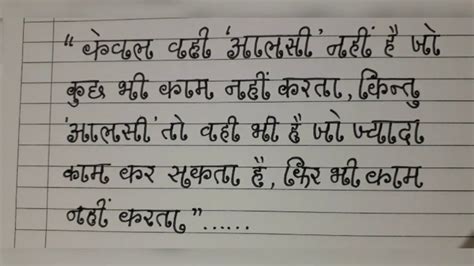 “ केवल वही ‘आलसी’ नहीं है जो
कुछ भी काम नहीं करता, किन्तु
‘आलसी’ तो वही भी है जो ज्यादा
काम कर सकता है, फिर भी काम
नहीं करता ”......